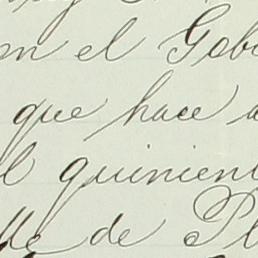 en el Gob
que hace a
l quinient
lle de Pl